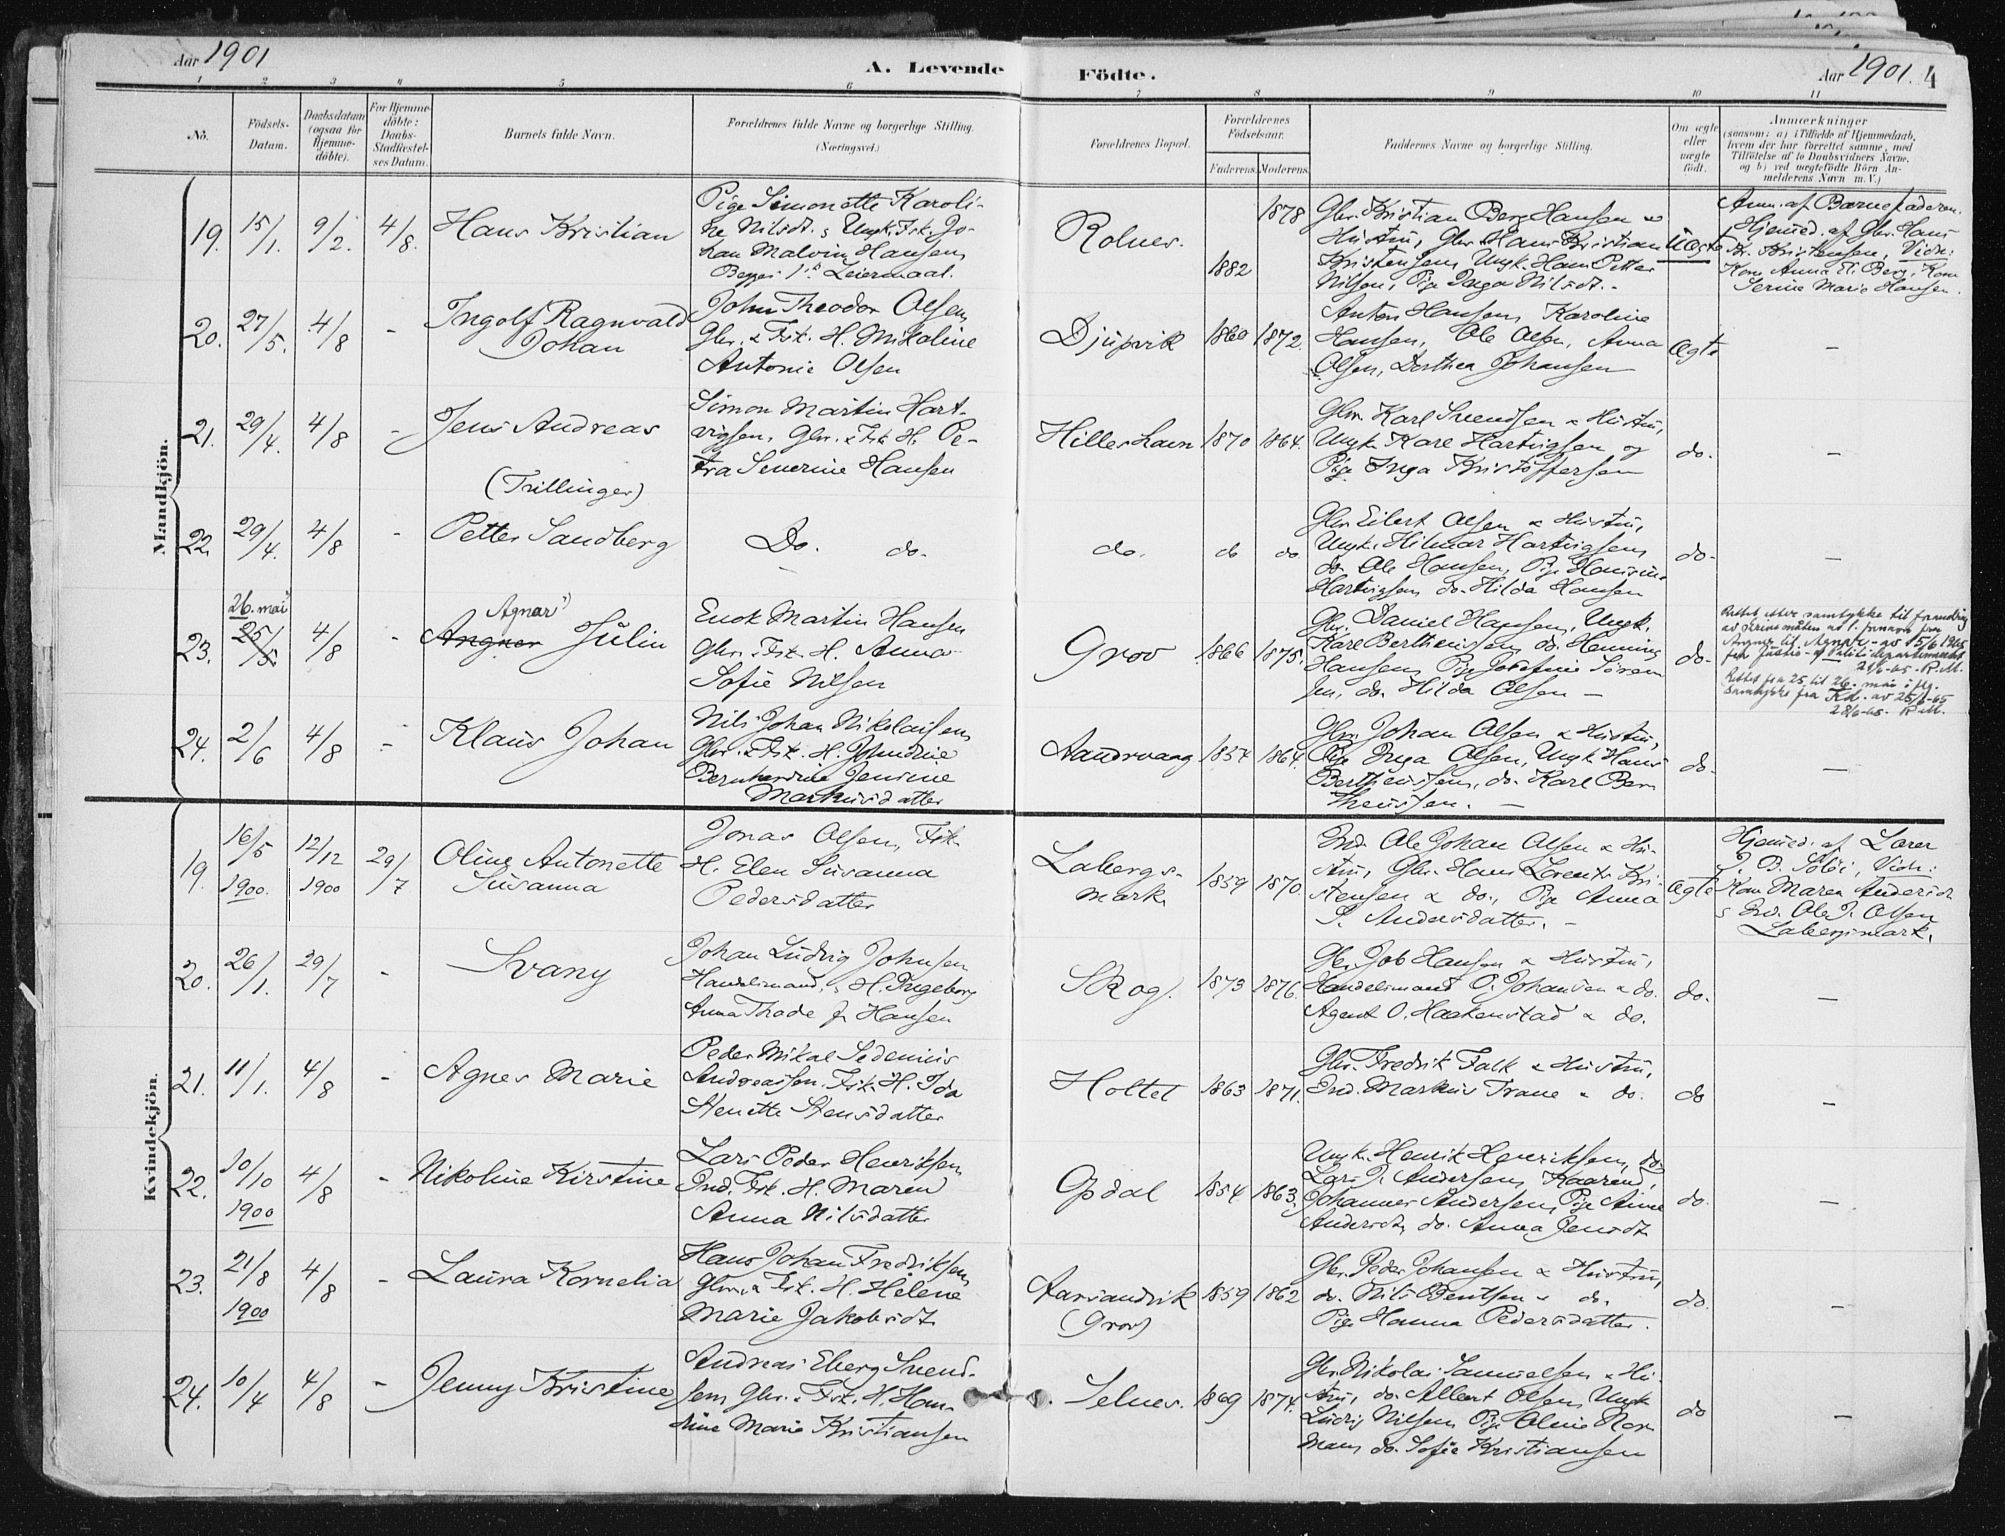 Aar 1901
A. Levende Födte.
Aar 1901. 4
1 2 3 4 5 6 7 8 9 10 11
No.
Födsels-
Datum.
Daabsdatum
(ogsaa for
Hjemme-
döbte).
For Hjemme-
döbte:
Daabs-
Stadfæstel-
ses Datum.
Barnets fulde Navn.
Forældrenes fulde Navne og borgerlige Stilling.
(Næringsvei.)
Forældrenes Bopæl.
Forældrenes
Födselsaar.
Faderens. Moderens.
Faddernes Navne og borgerlige Stilling.
Om ægte
eller
uægte
födt.
Anmærkninger
(saasom: a) i Tilfælde af Hjemmedaab,
hvem der har forrettet samme, med
Tilföielse af to Daabsvidners Navne,
og b) ved uægtefödte Börn An-
melderens Navn m. V.)
Mandkjön.
19. 15/1. 9/2. 4/8. Hans Kristian
Pige Simonette Karoli-
ne Nilsdt. & Ungk. Fsk. Jo-
han Malvin Hansen
Begges 1ste Leiermaal.
Rolnes.
1882 1878
Gbr. Kristian Berg Hansen &
Hustru, Gbr. Hans Kristian
Kristensen, Ungk. Hans Petter
Nilsen, Pige Inga Nilsdt. -
Uægte
Anm. af Barnefaderen.
Hjemmed. af Gbr. Hans
Kr. Kristensen, Vidn:
Kone Anna E. Berg, Kone
Serine Marie Hansen.
20. 27/5. 4/8 - Ingolf Ragnvald
Johan
John Theodor Olsen
Gbr. & Fsk. H. Nikoline
Antonie Olsen
Djupvik 1860 1872.
Anton Hansen, Karoline
Hansen, Ole Olsen, Anna
Olsen, Dorthea Johansen
Ægte -
21. 29/4. 4/8 - Jens Andreas
(Trillinger)
Simon Martin Hart-
vigsen, Gbr. & Fsk. H. Pe-
tra Severine Hansen
Hilleshavn 1870 1864.
Gbr. Karl Svendsen & Hustru,
Ungk. Kare Hartvigsen og
Pige Inga Kristoffersen
do. -
22. 29/4. 4/8 - Petter Sandberg
Do. do.
do. do do
Gbr. Eilert Olsen & Hustru,
Ungk. Hilmar Hartvigsen,
do. Ole Hansen, Pige Hansine
Hartvigsen do. Hilda Hansen
do - -
23. 26. mai 25/5 4/8 - Agnar Angner Julin
Enok Martin Hansen
Gbr. & Fsk. H. Anna
Sofie Nilsen
Grov 1866 1875.
Gbr. Daniel Hansen, Ungk.
Karl Bertheussen, do. Henning
Hansen, Pige Josefine Sören-
sen, do. Hilda Olsen -
do -
Rettet etter samtykke til forandring
av skrivemåten av 1. fornavn fra
Angner til Agnar - av 15/6 1965
fra Justis- og Politidepartementet
21/6-65 - R.M.
Rettet fra 25 til 26. mai i flg.
samtykke fra KM. av 25/6-65
28/6-65. R.M.
24. 2/6 4/8 - Klaus Johan
Nils Johan Nikolaisen
Gbr. & Fsk. H. Johndine
Bernhardine Jensine
Markusdatter
Aandervaag 1857 1864.
Gbr. Johan Olsen & Hustru,
Pige Inga Olsen, Ungk. Hans
Bertheussen, do. Karl Ber-
theussen. -
do. -
Kvindekjön.
19. 16/5 1900. 12/12 1900 29/7 Oline Antonette
Susanna
Jonas Olsen, Fsk.
H. Elen Susanna
Pedersdatter
Labergs-
mark. 1859 1870.
Ind. Ole Johan Olsen & Hu-
stru, Gbr. Hans Lorents Kri-
stensen & do., Pige Anna
S. Andersdatter. -
Ægte
Hjemmed. af Lærer
J. B. Solöi, Vidn:
Kone Maren Andersdt.
& Ind. Ole J. Olsen
Labergsmark.
20. 26/1. 29/7 - Svany
Johan Ludvig Johnsen
Handelsmand, & H. Ingeborg
Anna Thode f. Hansen
Skog. 1873 1876.
Gbr. Job Hansen & Hustru,
Handelsmand O. Johansen & do.
Agent O. Haakenstad & do.
do. -
21. 11/1. 4/8 - Agnes Marie
Peder Mikal Sedenius
Andreassen, Fsk. H. Ida
Henette Stensdatter
Holtet 1863 1871.
Gbr. Fredrik Falk & Hustru,
Ind. Markus Trane & do.
do -
22. 10/10 1900 4/8 - Nikoline Kirstine
Lars Peder Henriksen,
Ind. Fsk. H. Maren
Anna Nilsdatter
Gpdal 1854 1863.
Ungk. Henrik Henriksen, do.
Lars J. Andersen, Kaarend,
Johannes Andersen, Pige Anne
Andersdt, do. Anna Jensdt
do. -
23. 21/8 1900 4/8 - Laura Kornelia
Hans Johan Fredriksen,
Gbr. & Fsk. H. Helene
Marie Jakobsdt.
Aarsandvik
(Grov) 1859 1862
Gbr. Peder Johansen & Hustru,
do. Nils Bentsen & do.
Pige Hanna Pedersdatter.
do. -
24. 10/4 4/8 - Jenny Kristine
Andreas Eberg Svend-
sen, Gbr. & Fsk. H. Han-
sine Marie Kristiansen
Selnes. 1869 1874.
Gbr. Nikolai Samuelsen & Hu-
stru, do. Albert Olsen, Ungk.
Ludvig Nilsen, Pige Oline Nor-
mann, do. Sofie Kristiansen
do -